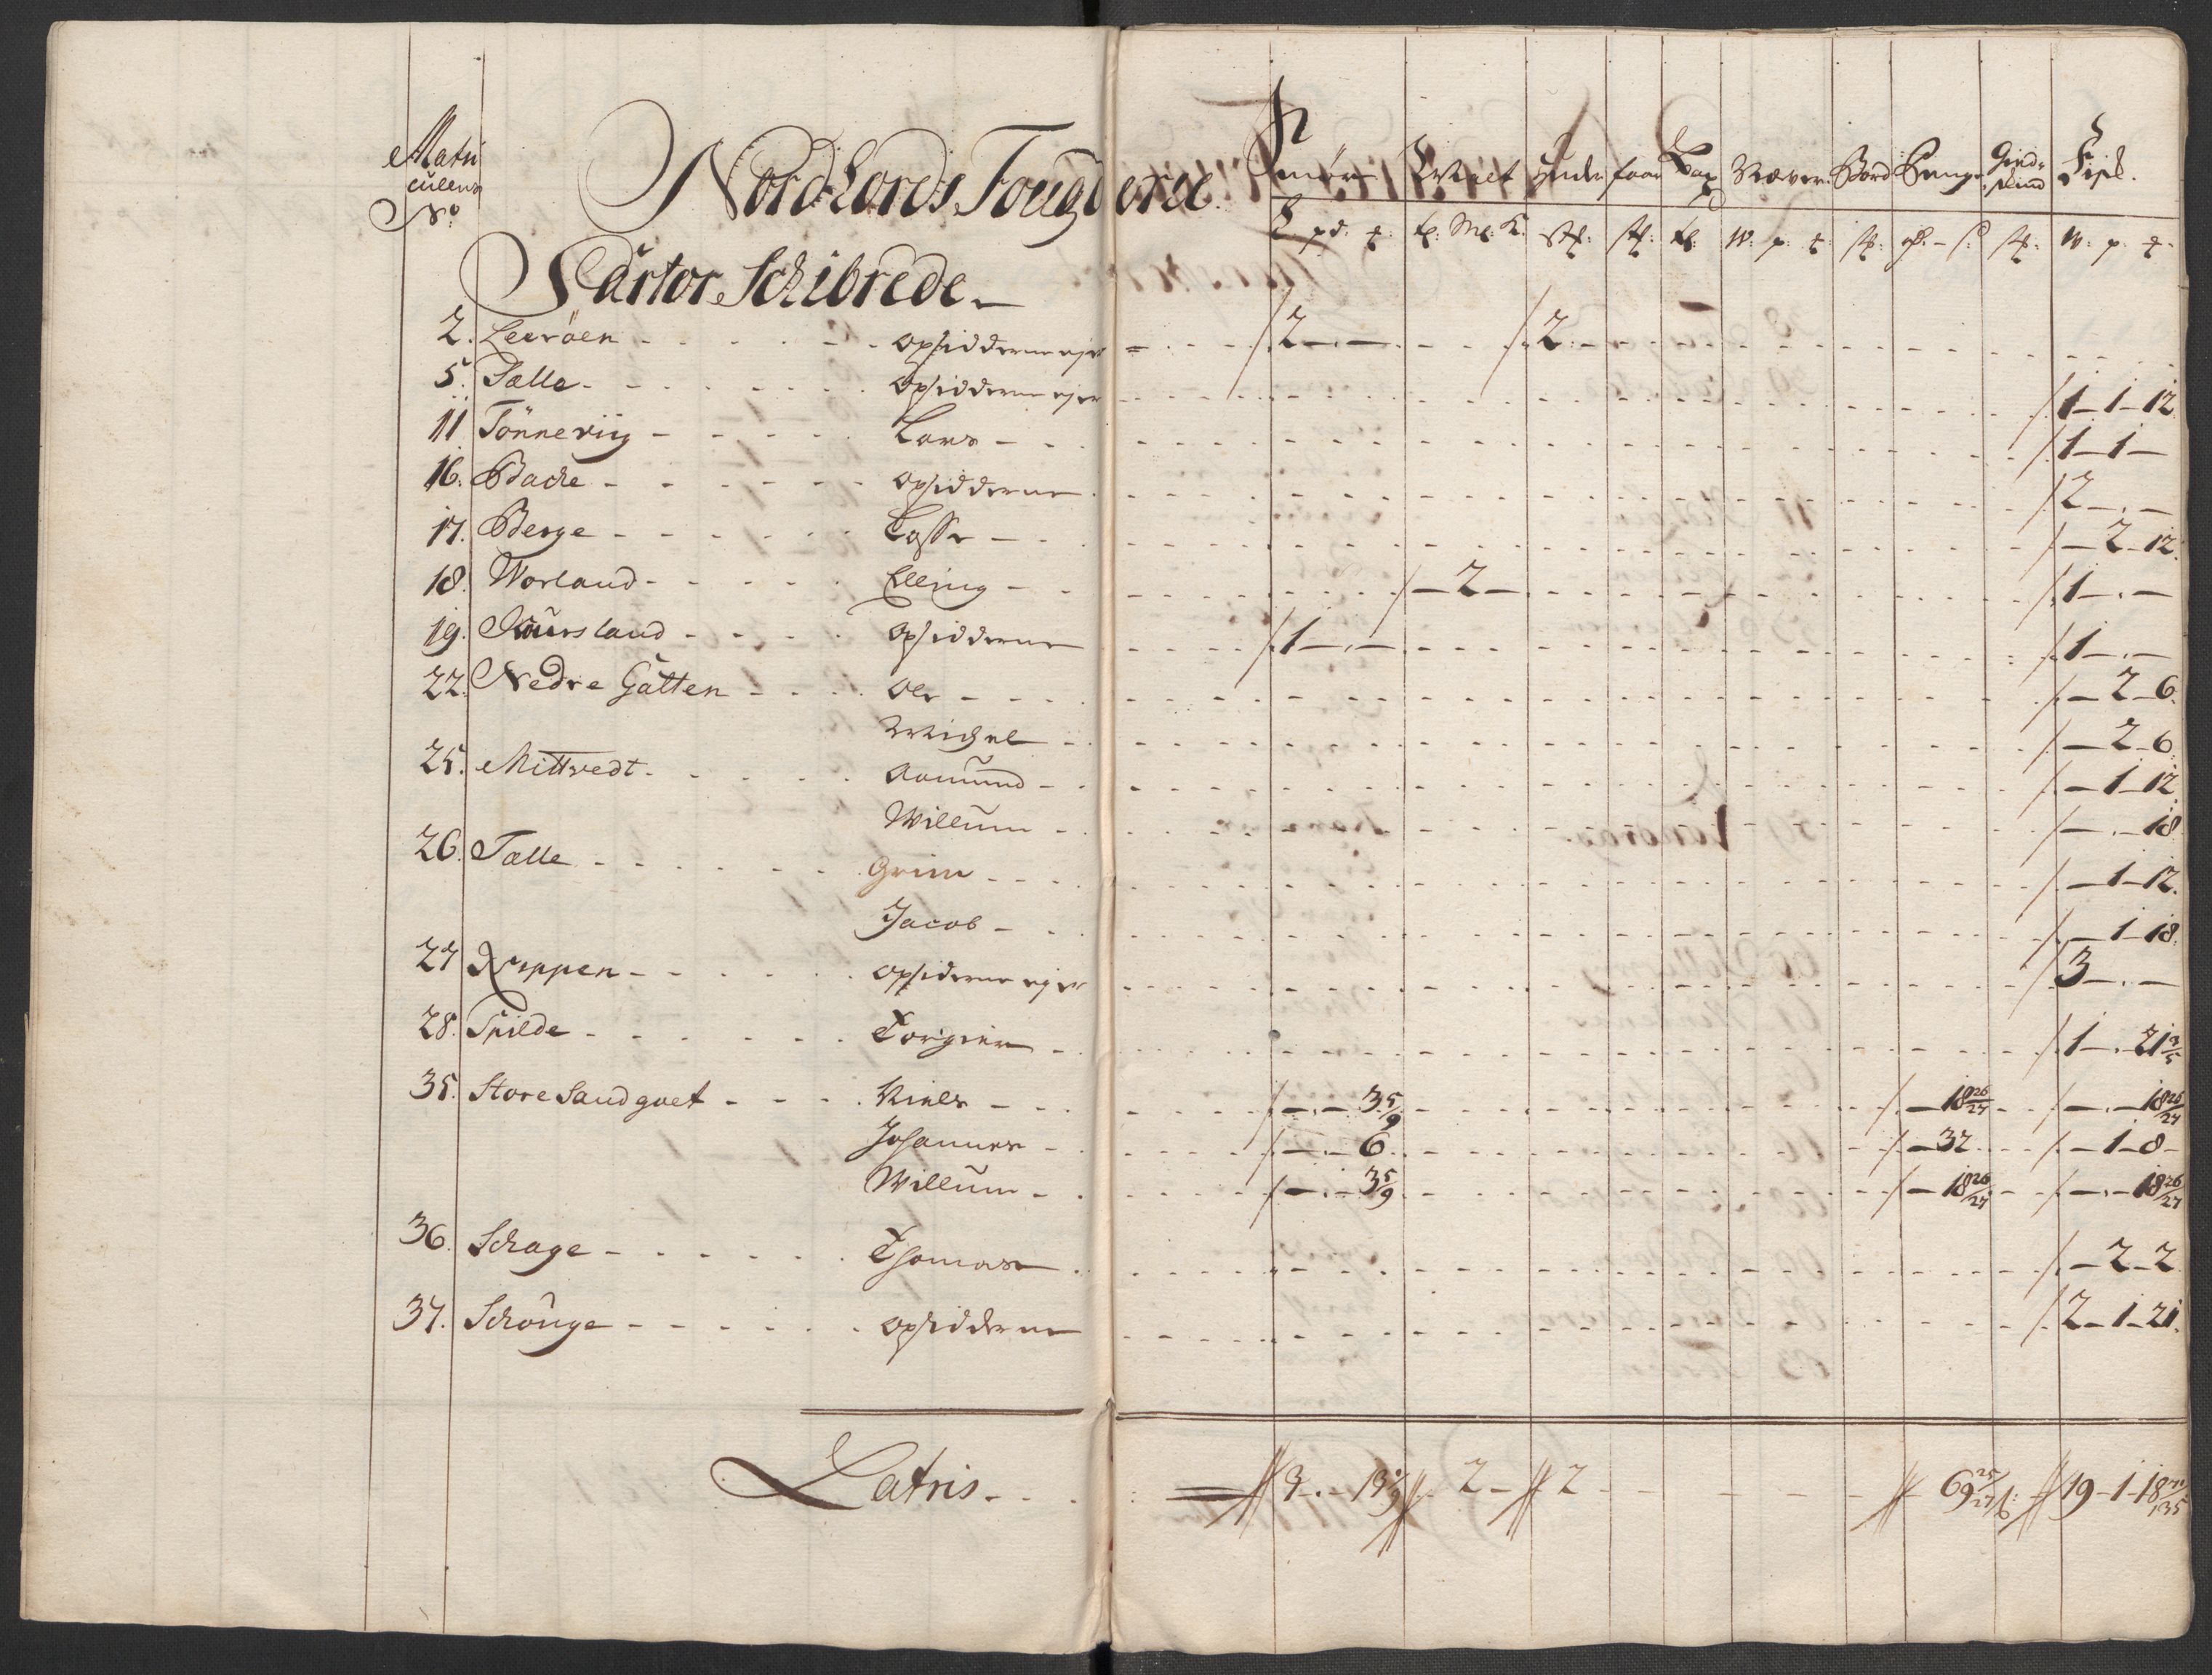 Matri
culens
No
Nord-Hords Fougderie.
Sartor Schibrede
Smør Malt Huder faar Lax Næver Bord Penge Giedeskind Fisk
2. Leeröen - - - - - - opsidderne ejer - - - 2 - . - - - 2. - - -
5. Sælle - - - - - - opsidderne ejer - - - 1 - 1 - 12
11 Tönneviig - - - - - Lars - - - 1 - 1 -
16. Backe - - - - - - opsidderne - - - 2 - . -
17. Berge - - - - - - Lasse - - - - 2 - 12.
18. Worland - - - - - Elling - - - - 2 - - - - 1 - . -
19. Kaursland - - - - opsidderne - - - 1 - . - - - - 1 - . -
22. Nedre Gatten - - - - Ole - - - - 2 - 6.
Michel - - - 2 - 6.
25. Mittvedt - - - - - Aamund - - - 1 - 12
Willum - - - . - 18
26. Tælle - - - - - - Grim - - - - 1 - 12.
Jacob - - - - 1 - 18.
27 Kleppen - - - - - opsiderne ejer - - - 3 - . -
28. Spilde - - - - - - Torgier - - - 1 - . - 21 3/5
35. Store Sandgaet - - - Niels - - - - . - 3 5/9 - - - - 18 26/27 - - - . - 18 26/27
Johannes - - - . - 6 - - - - 32 - - - 1 - 8 -
Willum - - - . - 3 5/9 - - - - 18 26/27 - - - . - 18 26/27
36. Schage - - - - - Thomas - - - 2 - 2
37. Schouge - - - - - opsidderne - - - 2 - 1 - 21.
Latris - - - 3 - . - 13 1/9 - 2 - 2 - - - 69 25/27 ß: 19 - 1 - 18